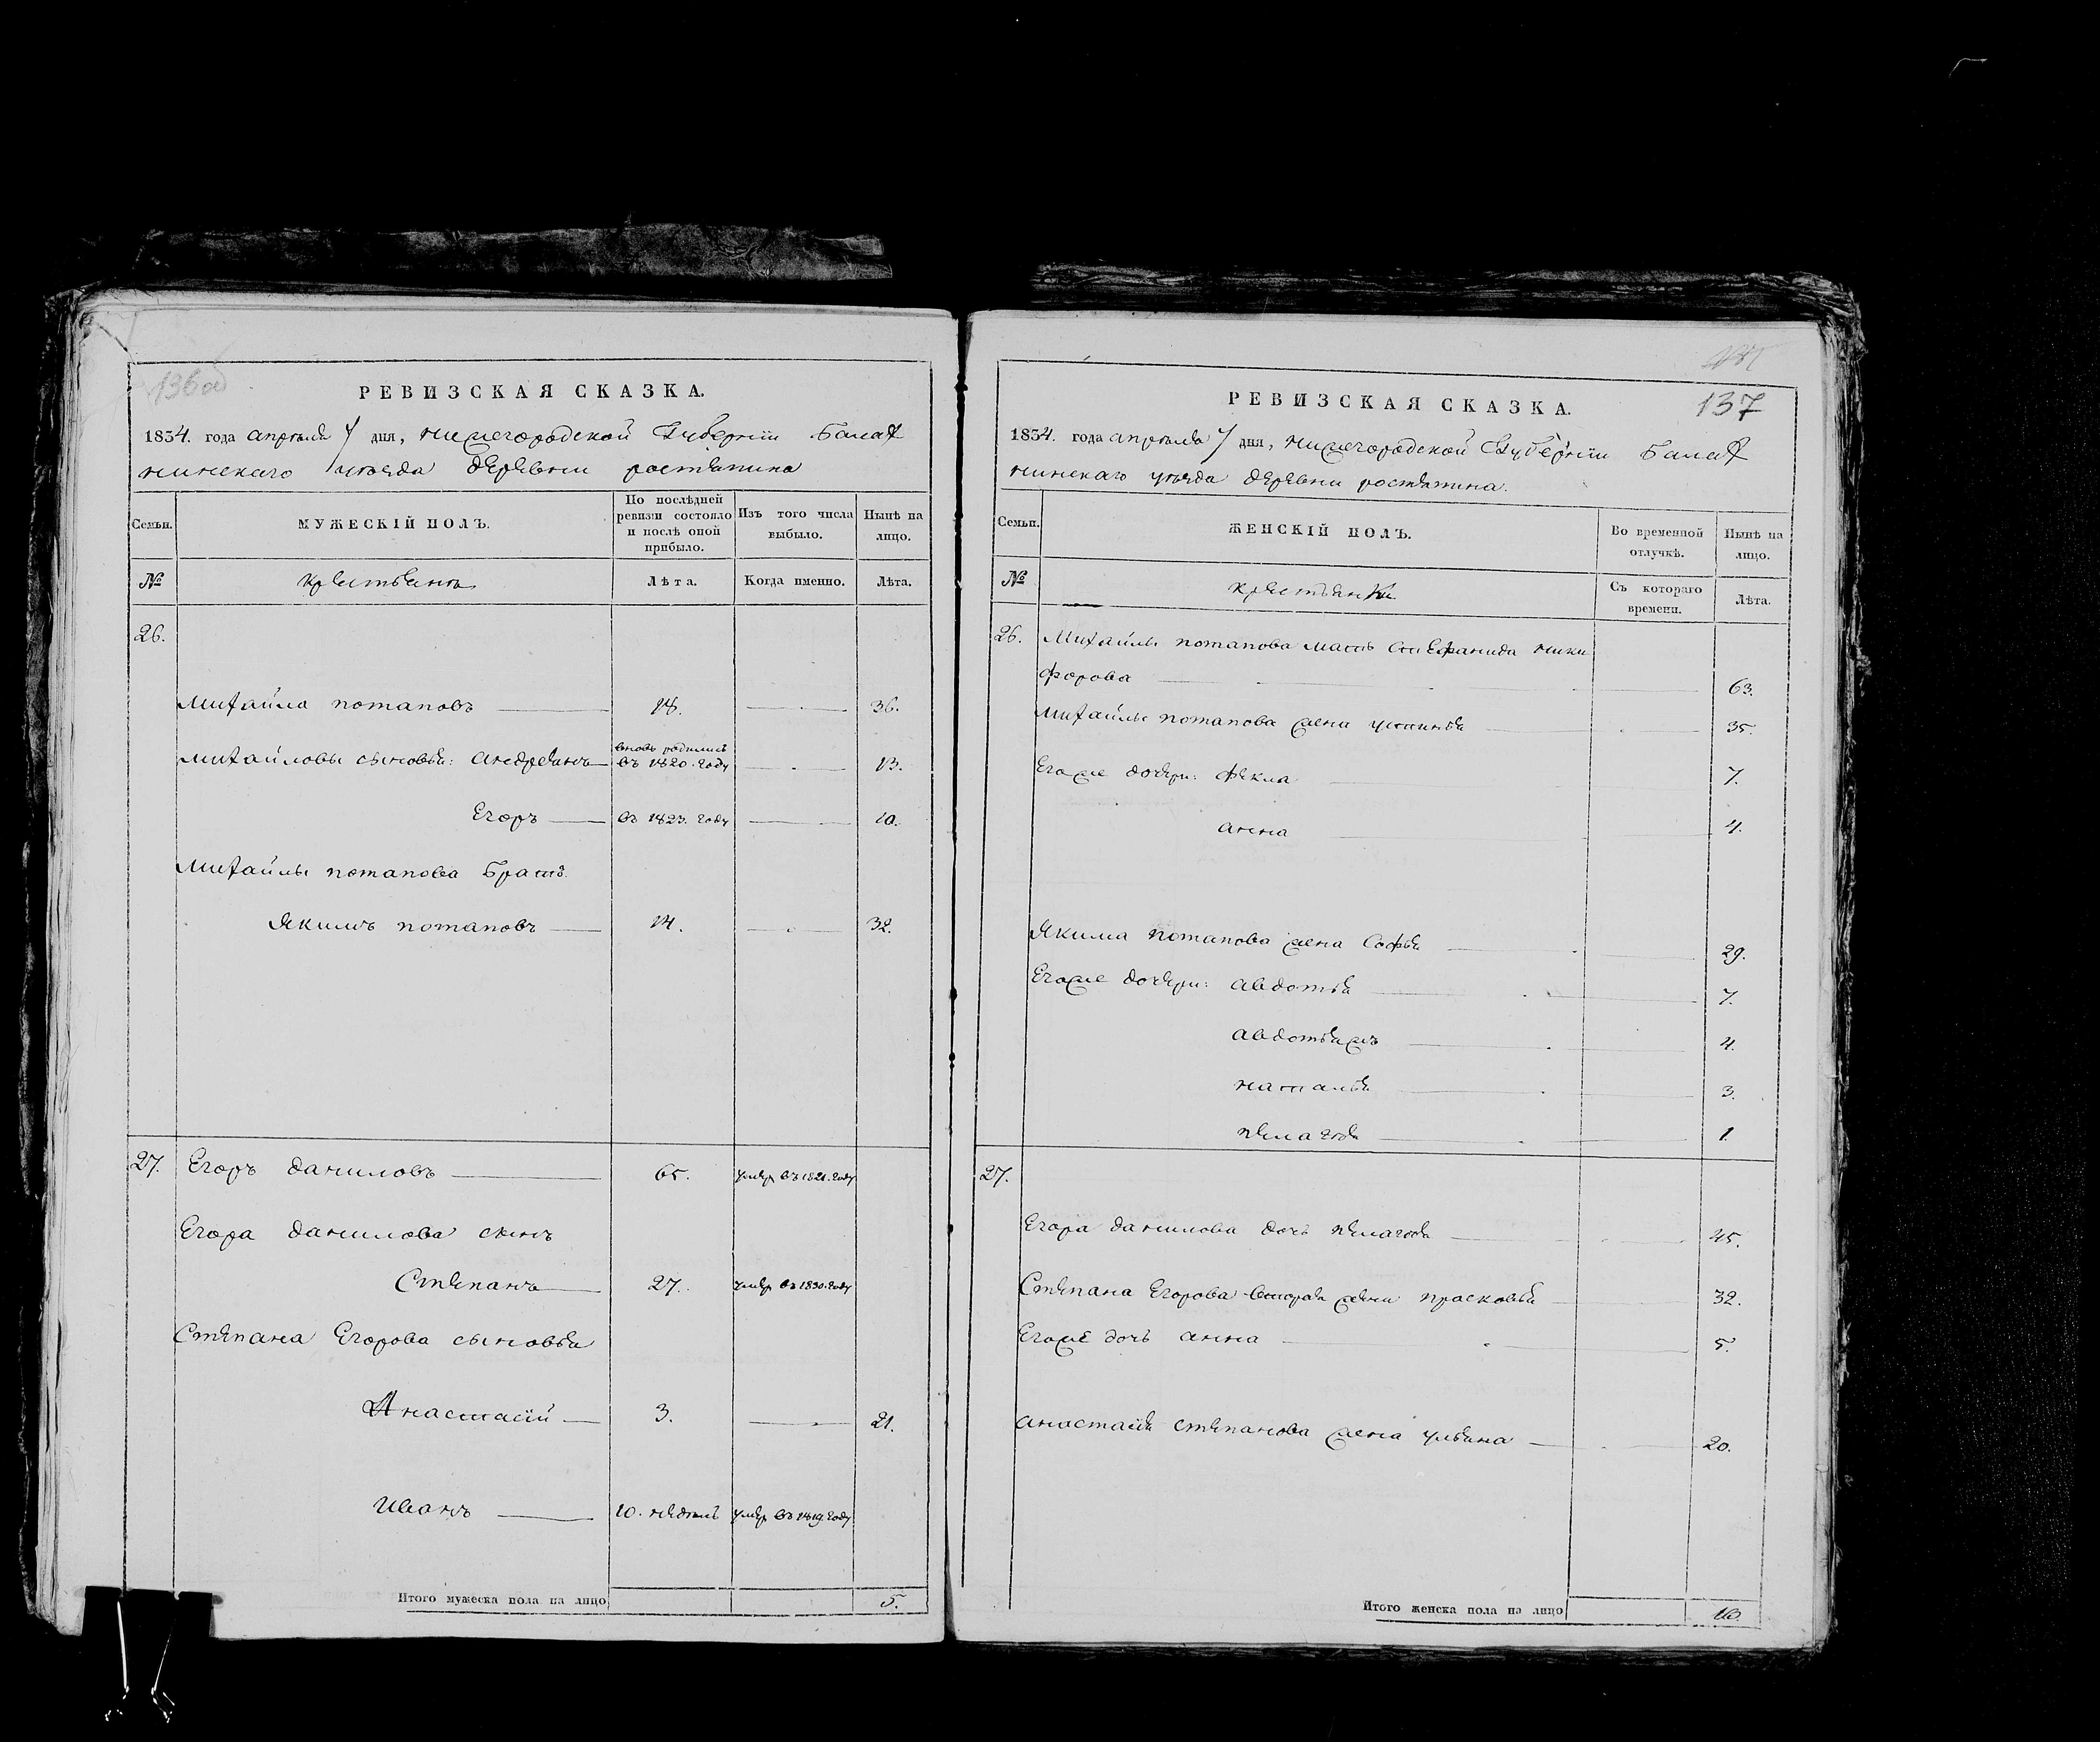 136об
РЕВИЗСКАЯ СКАЗКА.
1834. года апреля 7 дня, нижегородской Губернiи Балах
нинскаго уѣзда деревни ростяпина
Семьи.
МУЖЕСКІЙ ПОЛЪ.
По послѣдней ревизіи состояло и послѣ оной прибыло.
Изъ того числа выбыло.
Нынѣ на лицо.
№
крестьянъ
Лѣта.
Когда именно.
Лѣта.
26.
Михайла потаповъ 18. 36.
Михайловы сыновья: андреянъ вновь родились въ 1820. году 13.
Егоръ въ 1823. году 10.
Михайлы потапова Братъ
Якимъ потаповъ 14. 32.
27. Егоръ даниловъ 65. умеръ въ 1821. году
Егора данилова сынъ
Степанъ 27. умеръ въ 1830. году
Степана Егорова сыновья
Анастасiй 3. 21.
Иванъ 10. недель умеръ въ 1819. году
Итого мужеска пола на лицо 5.
137
РЕВИЗСКАЯ СКАЗКА.
1834. года апреля 7 дня, нижегородской Губернiи Балах
нинскаго уѣзда деревни ростяпина.
Семьи.
ЖЕНСКІЙ ПОЛЪ.
Во временной отлучкѣ.
Нынѣ на лицо.
№
крестьянки
Съ котораго времени.
Лѣта.
26. Михайлы потапова мать степанида ники
форова 63.
Михайлы потапова жена устинья 35.
Егоже дочери: фекла 7.
анна 4.
Якима потапова жена Софья 29.
Егоже дочери: авдотья 7.
авдотьяжъ 4.
наталья 3.
пелагея 1
27.
Егора данилова дочь пелагея 45.
Степана Егорова вторая жена прасковья 32.
Егоже дочь анна 5.
анастасия степанова жена ульяна 20.
Итого женска пола на лицо